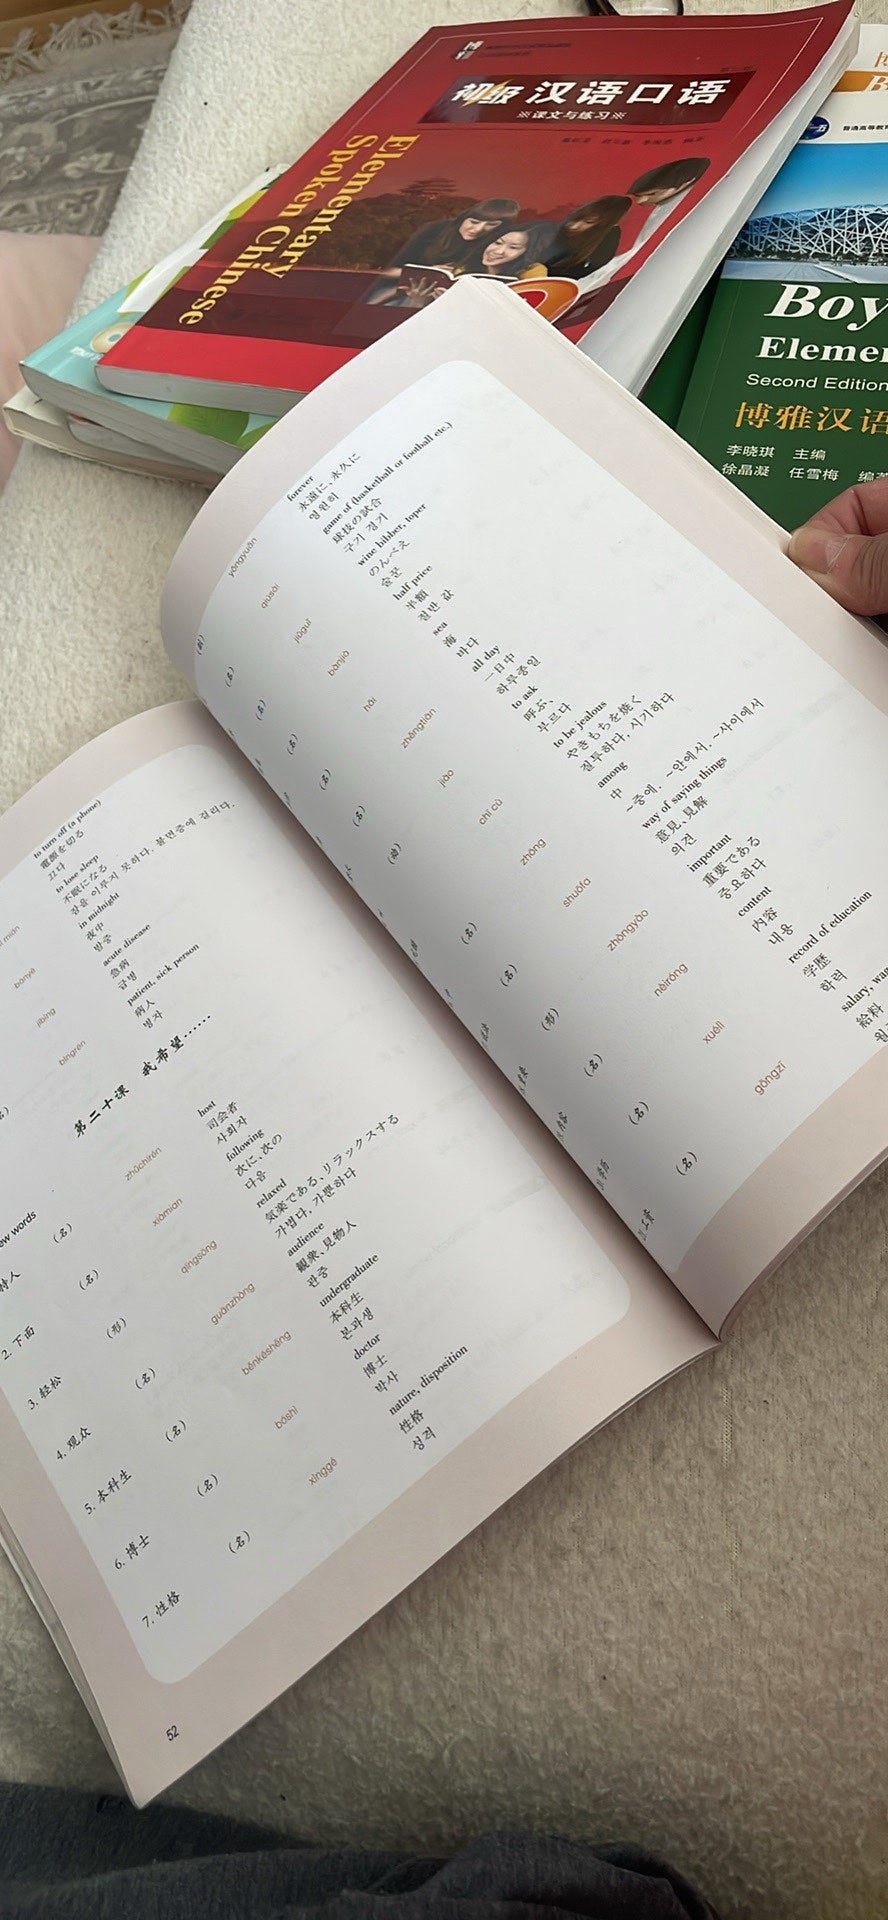 初级 汉语口语
※课文与练习※
Elementary
Spoken Chinese
普通高等教育
Boy
Elemen
Second Edition
博雅汉语
李晓琪 主编
徐晶凝 任雪梅 编著
to turn off (a phone)
電源を切る
끄다
to lose sleep
不眠になる
잠을 이루지 못하다. 불면증에 걸리다.
bànyè
in midnight
夜中
밤중
jíbìng
acute disease
急病
급병
bìngrén
patient, sick person
病人
병자
第二十课 我希望……
ew words
持人 (名) zhǔchírén host
司会者
사회자
2. 下面 (名) xiàmian following
次に、次の
다음
3. 轻松 (形) qīngsōng relaxed
気楽である、リラックスする
가볍다. 가뿐하다
4. 观众 (名) guānzhòng audience
観衆、見物人
관중
5. 本科生 (名) běnkēshēng undergraduate
本科生
본과생
6. 博士 (名) bóshì doctor
博士
박사
7. 性格 (名) xìnggé nature, disposition
性格
성격
52
(副) yǒngyuǎn forever
永遠に、永久に
영원히
(名) qiúsài game of (basketball or football etc.)
球技の試合
구기 경기
(名) jiǔguǐ wine bibber, toper
のんべえ
술꾼
(名) bànjià half price
半額
절반 값
(名) hǎi sea
海
바다
(名) zhěngtiān all day
一日中
하루종일
(动) jiào to ask
呼ぶ、
부르다
chī cù to be jealous
やきもちを焼く
질투하다, 시기하다
(名) zhōng among
中
~중에. ~안에서. ~사이에서
(名) shuōfǎ way of saying things
意見、見解
의견
(形) zhòngyào important
重要である
중요하다
内容 (名) nèiróng content
内容
내용
学历 (名) xuélì record of education
学歴
학력
工资 (名) gōngzī salary, wa
給料
월